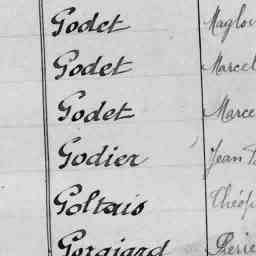 Godet Maglo
Godet Marcel
Godet Marce
Godier Jean
Goltais Théop
Gorgiard Pierre